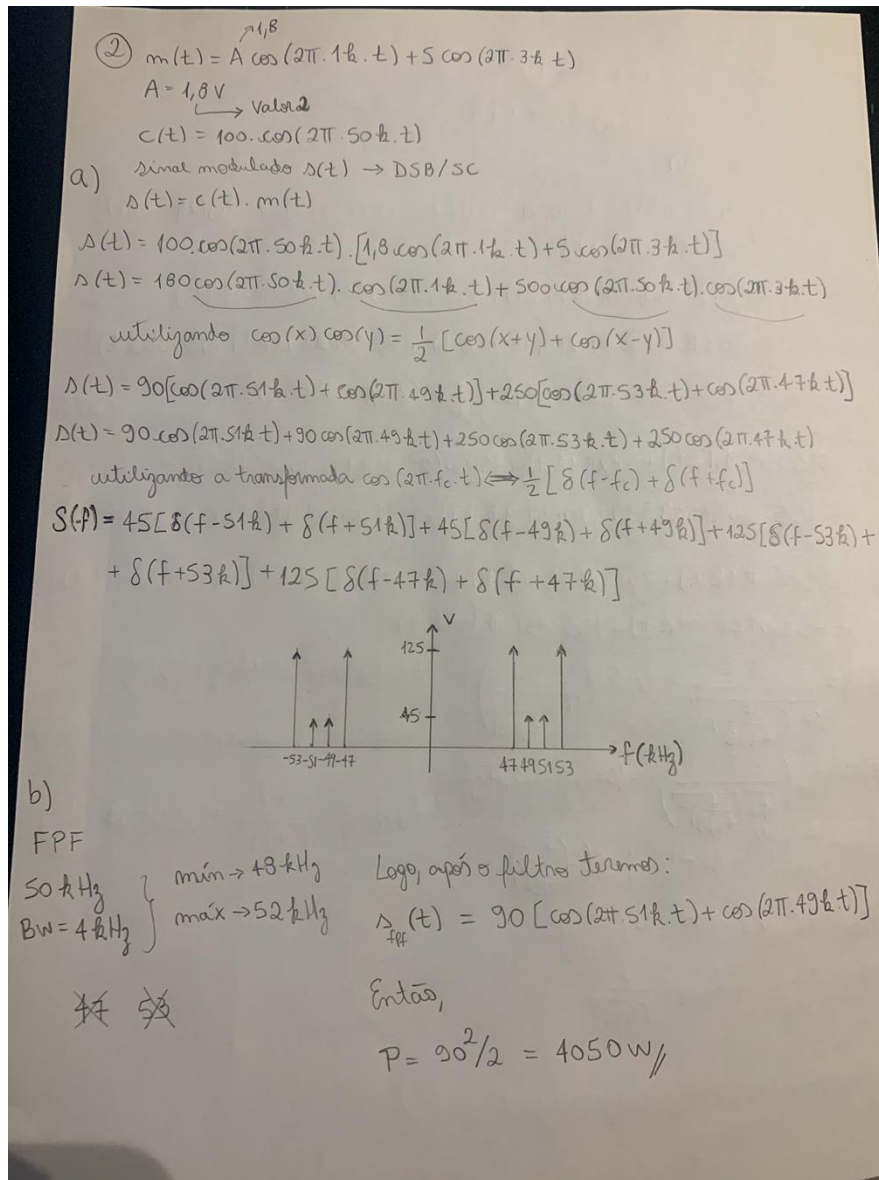 ↗1,8
② m(t) = A cos(2π.1k.t) + 5 cos(2π.3k t)
A = 1,8 V
↳ Valor 2
c(t) = 100.cos(2π.50k.t)
a) sinal modulado s(t) → DSB/SC
s(t) = c(t). m(t)
s(t) = 100.cos(2π.50k.t).[1,8.cos(2π.1k.t) + 5.cos(2π.3k.t)]
s(t) = 180cos(2π.50k.t). cos(2π.1k.t) + 500cos(2π.50k.t).cos(2π.3k.t)
utilizando cos(x) cos(y) = 1/2 [cos(x+y) + cos(x-y)]
s(t) = 90[cos(2π.51k.t) + cos(2π.49k.t)] + 250[cos(2π.53k.t) + cos(2π.47k t)]
s(t) = 90.cos(2π.51k t) + 90 cos(2π.49k t) + 250cos(2π.53k.t) + 250cos(2π.47k t)
utilizando a transformada cos(2π.fc.t) ⟺ 1/2 [δ(f-fc) + δ(f+fc)]
S(f) = 45[δ(f-51k) + δ(f+51k)] + 45[δ(f-49k) + δ(f+49k)] + 125[δ(f-53k) +
+ δ(f+53k)] + 125 [δ(f-47k) + δ(f+47k)]
V
125
45
-53 -51 -49 -47 47 49 51 53 f(kHz)
b)
FPF
50 kHz
BW = 4 kHz
mín → 48 kHz
máx → 52 kHz
47 53
Logo, após o filtro teremos:
s_fpf(t) = 90 [cos(2π.51k.t) + cos(2π.49k t)]
Então,
P = 90²/2 = 4050 W//